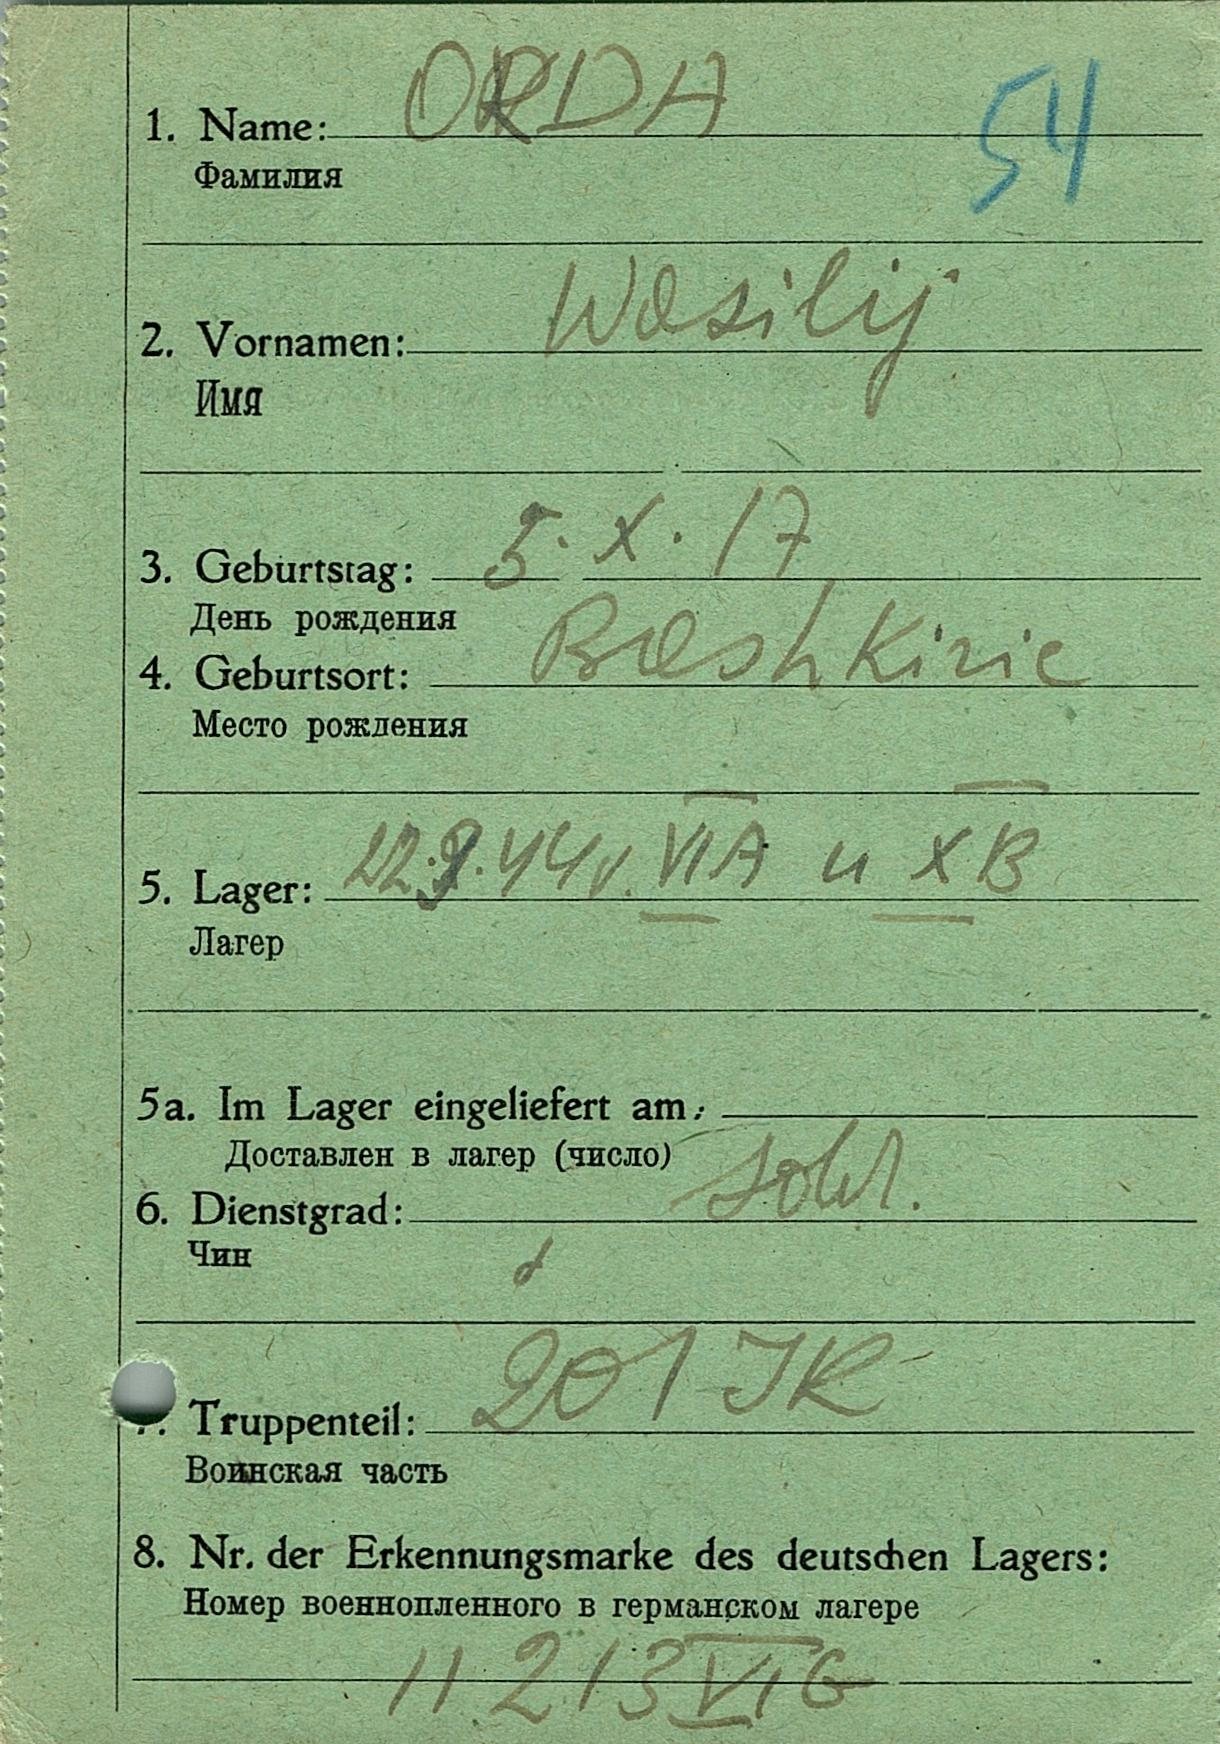 1. Name: ORDA
54
Фамилия
2. Vornamen: Wasilij
Имя
3. Geburtstag: 5. X. 17
День рождения
4. Geburtsort: Bashkirie
Место рождения
5. Lager: 22.9.44 v. VIA n XB
Лагер
5a. Im Lager eingeliefert am:
Доставлен в лагер (число)
6. Dienstgrad: Sold.
Чин
7. Truppenteil: 201 IR
Воинская часть
8. Nr. der Erkennungsmarke des deutschen Lagers:
Номер военнопленного в германском лагере
11213 VI G